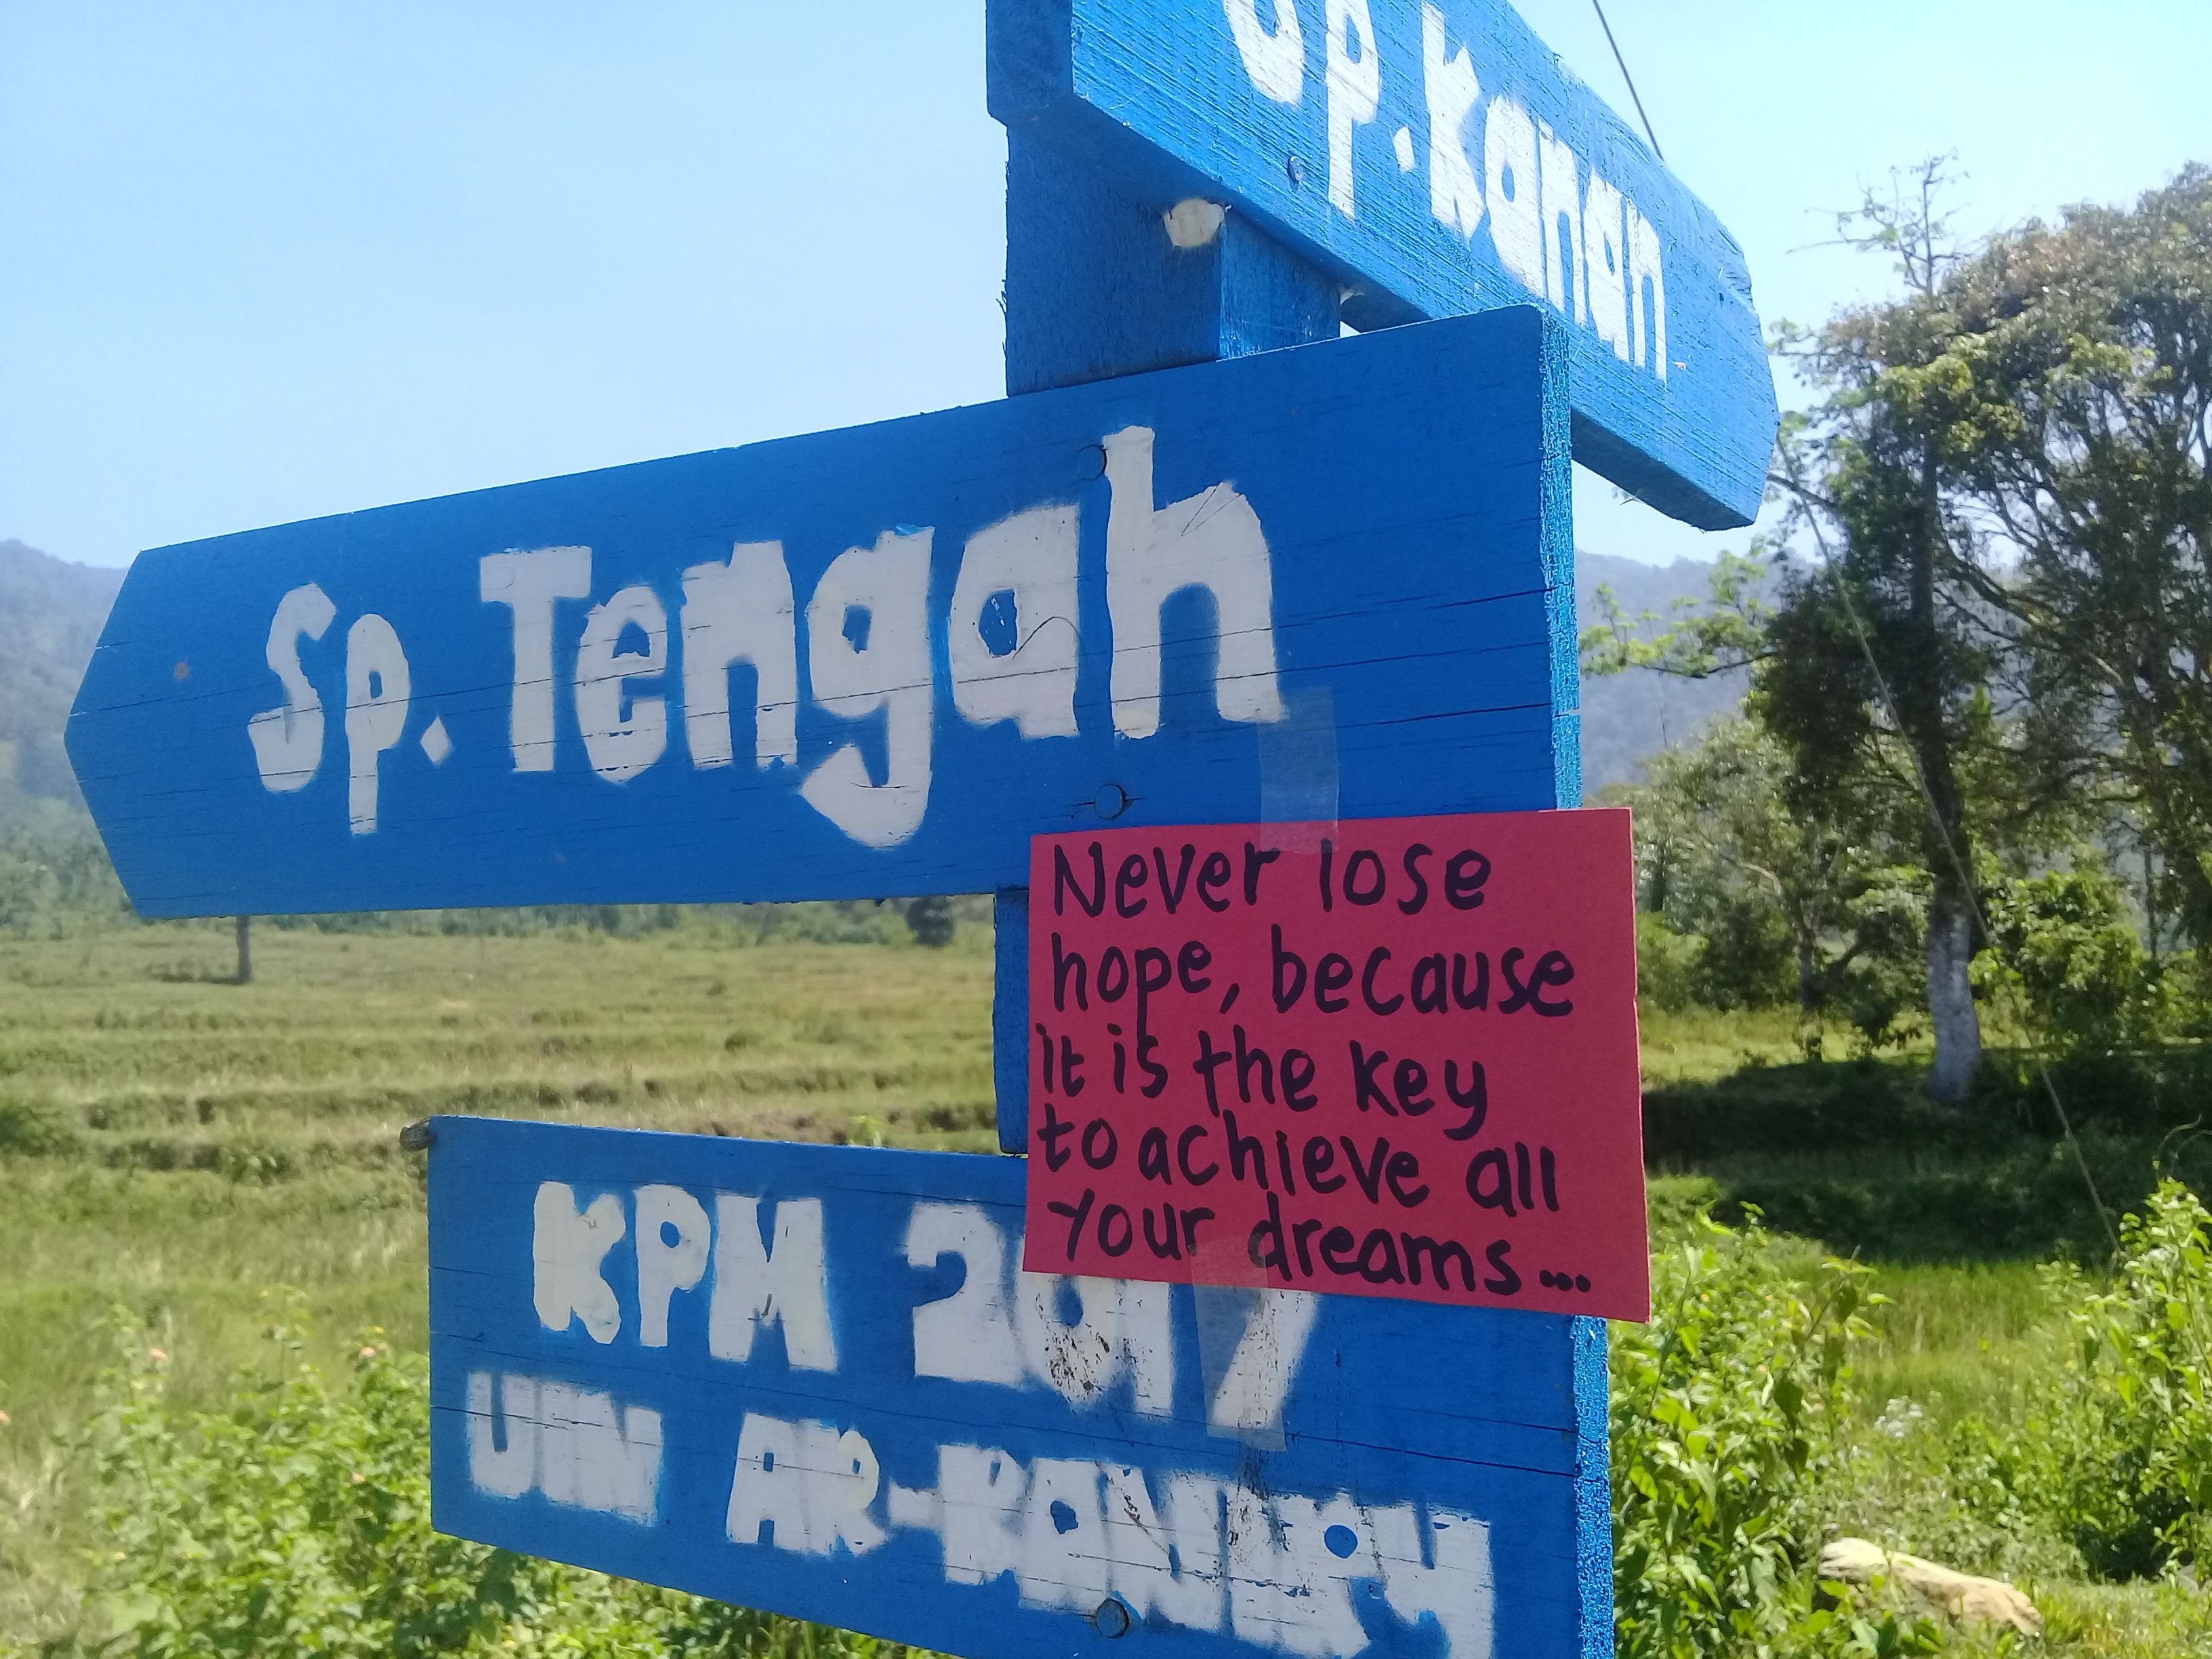 Sp. Kanan
Sp. Tengah
Never lose
hope, because
it is the key
to achieve all
your dreams...
KPM 2017
UIN AR-RANIRY